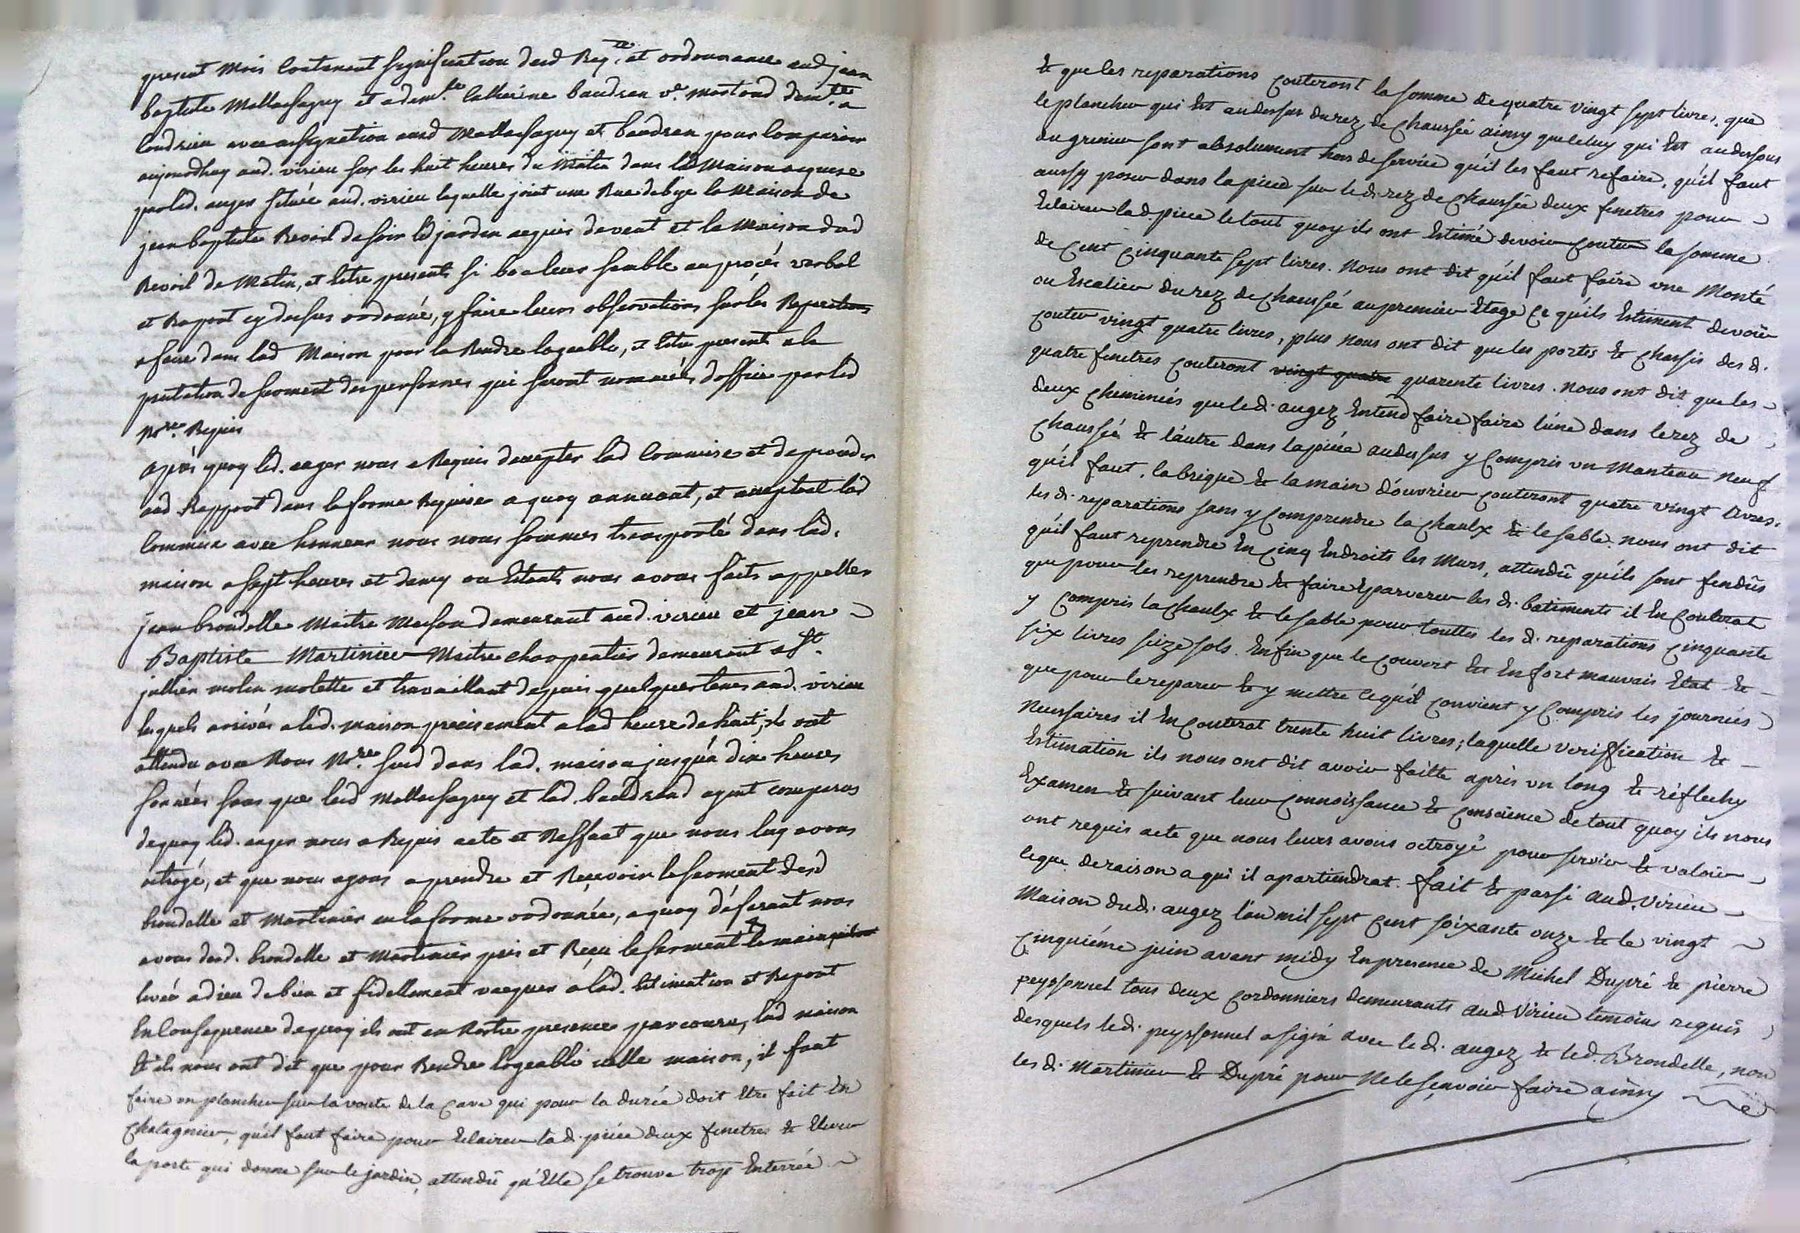 present mois contenant signification desd Reqte. et ordonnance aud jean
baptiste Mallassagny et a demlle. Catherine baudran ve. Montond demte. a
Condrieu avec assignation aud Mallassagny et baudran pour comparoir
aujourdhuy aud. virieu sur les huit heures du Matin dans la Maison acquise
par led. auger située aud. virieu laquelle joint une Rue de bize la Maison de
jean baptiste Revoil de soir led jardin acquis de vent et la Maison dud
Revoil de Matin, et être presents si bon leur semble au procès verbal
et Raport cy dessus ordonné, y faire leurs observations sur les Reparations
a faire dans lad Maison pour la Rendre logeable, et être presents a la
prestation de serment des personnes qui seront nommées d'office par led
Nre. Requis
après quoy led. auger nous a Requis d'accepter lad Commise et de proceder
aud Rapport dans la forme Requise a quoy annuant, et acceptant lad
Commise avec honneur nous nous sommes transporté dans lad.
maison a sept heures et demy ou Estants nous avons faits appeller
jean brondelle Maitre Masson demeurant aud. virieu et jean
Baptiste Martinier Maitre charpentier demeurant a St.
jullien molin molette et travaillant depuis quelques tems aud. virieu
lequels arrivés a lad. maison precisement a lad heure de huit, et ont
attendu avec Nous Nre. susd dans lad. maison jusqu'a dix heures
sonnées sans que led Mallassagny et lad. baudrand ayent comparus
de quoy led. auger nous a Requis acte et Reffect que nous luy avons
octroyé, et que nous ayons a prendre et Recevoir le serment desd
brondelle et Martinier en la forme ordonnée, a quoy déferant nous
avons desd. brondelle et Martinier pris et Reçu le serment la main
levée a dieu de bien et fidellement vacquer a lad. Estimation et Raport
En Consequence de quoy ils ont en Nostre presence parcouru, lad maison
Et ils nous ont dit que pour Rendre logeable icelle maison, il faut
faire un plancher sur la voute de la Cave qui pour la durée doit Etre fait En
Chatagnier, qu'il faut faire pour Eclairer lad. piéce deux fenetres & Elever
la porte qui donne sur le jardin, attendû qu'Elle se trouve trop Enterrée
& que les reparations couteront la somme de quatre vingt sept livres. que
le plancher qui Est au dessus du rez de chaussée ainsy que celuy qui Est au dessous
du grenier sont absolument hors de service qu'il les faut refaire, qu'il faut
aussy poser dans la piece sur le d. rez de chaussée deux fenetres pour
Eclairer lad. piece le tout quoy ils ont Estimé devoir couter la somme
de cent cinquante sept livres. Nous ont dit qu'il faut faire une Monté
ou Escalier du rez de chaussée au premier Etage ce qu'ils Estiment devoir
couter vingt quatre livres, plus nous ont dit que les portes & chassis des d.
quatre fenetres couteront vingt quatre quarente livres. Nous ont dit que les
deux cheminées que le d. augez Entend faire faire l'une dans le rez de
chaussée & l'autre dans la piéce au dessus y compris un Manteau neuf
qu'il faut, la brique & la main d'ouvrier couteront quatre vingt livres.
les d. reparations sans y comprendre la chaulx & le sable. nous ont dit
qu'il faut reprendre En cinq Endroits les Murs, attendû qu'ils sont fendûs
que pour les reprendre & faire Eparverer les d. batiments il En Couterat
y compris la chaulx & le sable pour touttes les d. reparations cinquante
six livres seize sols. Enfin que le couvert Est En fort mauvais Etat &
que pour le reparer & y mettre ce qu'il convient y compris les journées
Nessaires il En couterat trente huit livres; laquelle verification &
Estimation ils nous ont dit avoir faitte après un long & réflechy
Examen & suivant leur connoissance & conscience de tout quoy ils nous
ont requis acte que nous leurs avons octroyé pour servir & valoir
ce que de raison a qui il apartiendrat. fait & passé aud. Virieu
Maison dud. augez l'an mil sept cent soixante onze & le vingt
cinquiéme juin avant midy En presence de Michel Dupré & pierre
peyssonnel tous deux cordonniers demeurants aud Virieu temoins requis
desquels led. peyssonnel a signé avec le d. augez & led. Brondelle, non
les d. Martinier & Dupré pour Ne le sçavoir faire ainsy